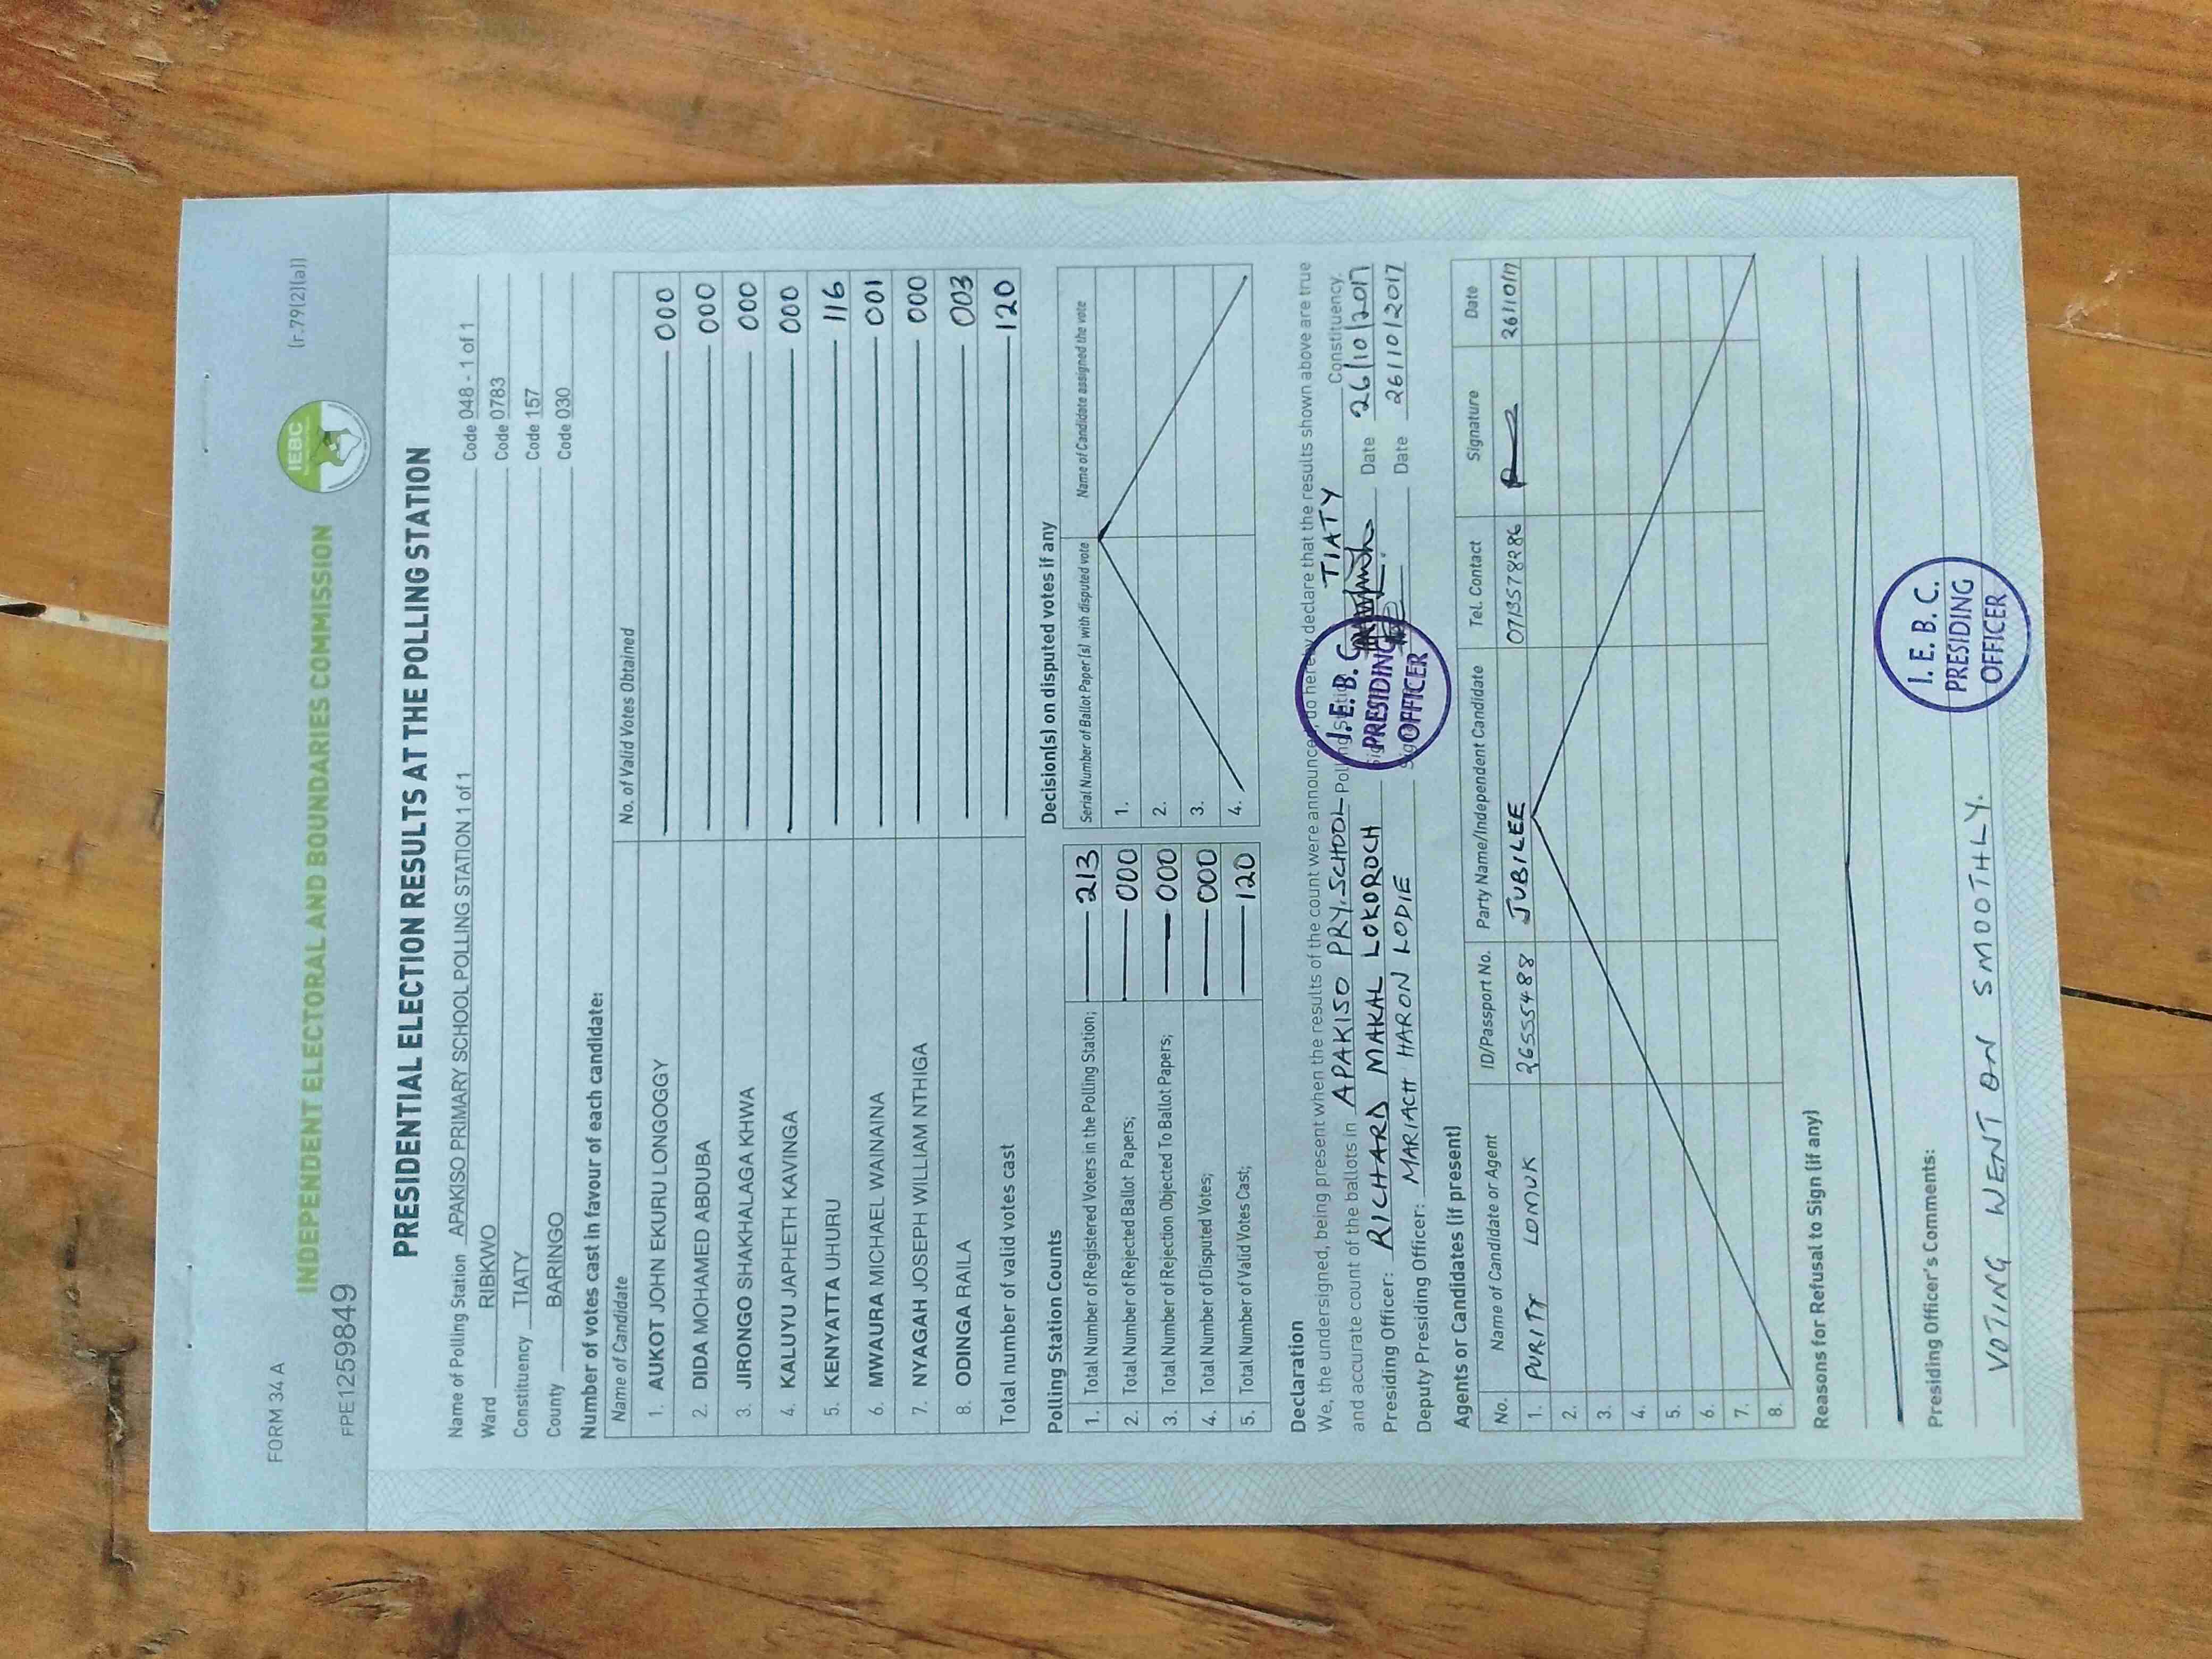 FORM 34 A
(r.79(2)(a))
INDEPENDENT ELECTORAL AND BOUNDARIES COMMISSION
IEBC
FPE1259849
PRESIDENTIAL ELECTION RESULTS AT THE POLLING STATION
Name of Polling Station APAKISO PRIMARY SCHOOL POLLING STATION 1 of 1 Code 048 - 1 of 1
Ward RIBKWO Code 0783
Constituency TIATY Code 157
County BARINGO Code 030
Number of votes cast in favour of each candidate:
Name of Candidate No. of Valid Votes Obtained
1. AUKOT JOHN EKURU LONGOGGY 000
2. DIDA MOHAMED ABDUBA 000
3. JIRONGO SHAKHALAGA KHWA 000
4. KALUYU JAPHETH KAVINGA 000
5. KENYATTA UHURU 116
6. MWAURA MICHAEL WAINAINA 001
7. NYAGAH JOSEPH WILLIAM NTHIGA 000
8. ODINGA RAILA 003
Total number of valid votes cast 120
Polling Station Counts
1. Total Number of Registered Voters in the Polling Station; 213
2. Total Number of Rejected Ballot Papers; 000
3. Total Number of Rejection Objected To Ballot Papers; 000
4. Total Number of Disputed Votes; 000
5. Total Number of Valid Votes Cast; 120
Decision(s) on disputed votes if any
Serial Number of Ballot Paper (s) with disputed vote Name of Candidate assigned the vote
1.
2.
3.
4.
Declaration
We, the undersigned, being present when the results of the count were announced, do hereby declare that the results shown above are true
and accurate count of the ballots in APAKISO PRY. SCHOOL Polling Station TIATY Constituency.
Presiding Officer: RICHARD MAKAL LOKOROCH Date 26/10/2017
Deputy Presiding Officer: MARIACH HARON LODIE Date 26/10/2017
I. E. B. C.
PRESIDING
OFFICER
Agents or Candidates (if present)
No. Name of Candidate or Agent ID/Passport No. Party Name/Independent Candidate Tel. Contact Signature Date
1. PURITY LOMUK 26555488 JUBILEE 0713578286 26/10/17
2.
3.
4.
5.
6.
7.
8.
Reasons for Refusal to Sign (if any)
Presiding Officer's Comments:
VOTING WENT ON SMOOTHLY.
I. E. B. C.
PRESIDING
OFFICER